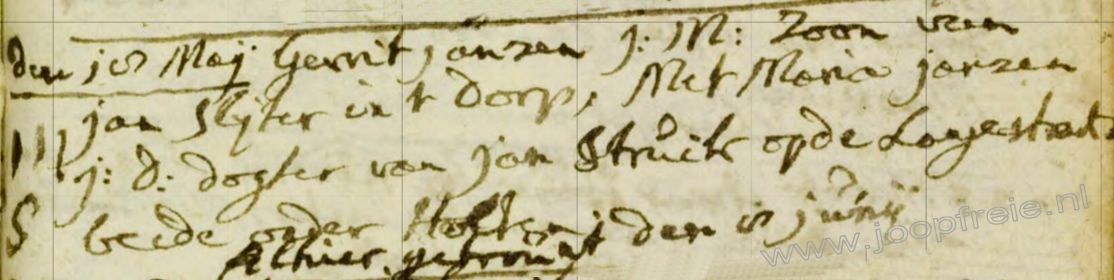 den 18 Maij Gerrit janzen j: M: Zoon van
jan Slijter in't Dorp, Met Maria janzen
III, j: D: dogter van jan Struik op de Langestraat
S beide onder Holten den 18 junij
Alhier getrouwt
www.joopfreie.nl